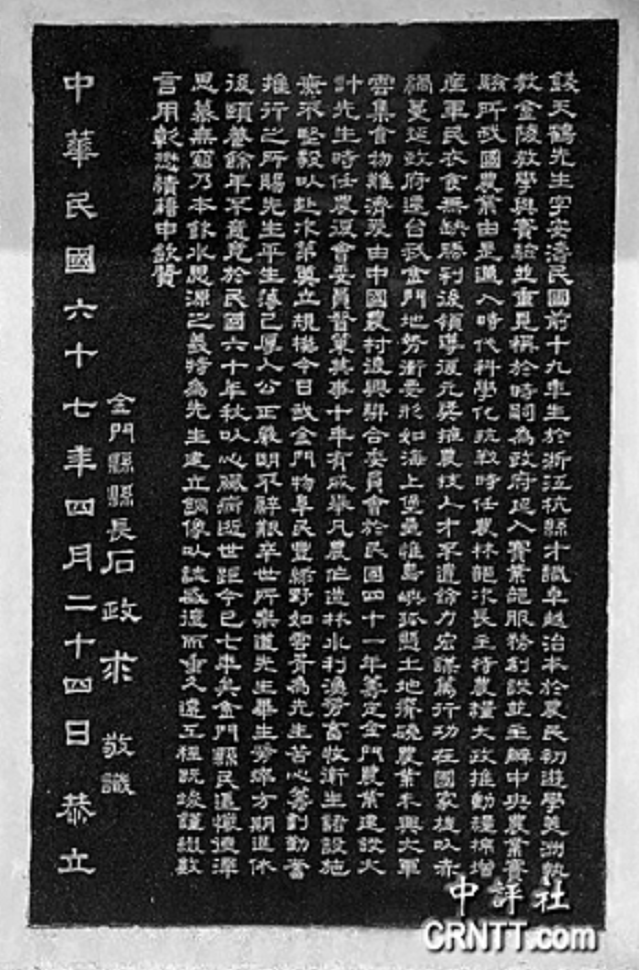 錢天鶴先生字安濤民國前十九年生於浙江杭縣才識卓越治本於農民初遊學美洲執
教金陵教學與實驗並重見稱於時嗣為政府延入實業部服務創設並主辦中央農業實
驗所我國農業由是邁入時代科學化抗戰時任農林部次長主持農糧大政推動糧棉增
產軍民衣食無缺勝利後領導復元獎掖農技人才不遺餘力宏謀篤行功在國家旋以赤
禍蔓延政府遷台我金門地勢衝要形如海上堡壘惟島嶼孤懸土地磽礉農業未興大軍
雲集食物難濟爰由中國農村復興聯合委員會於民國四十一年籌定金門農業建設大
計先生時任農復會委員督策其事十年有成舉凡農作造林水利漁勞畜牧衛生諸設施
靡不堅毅以赴次第奠立規模今日我金門物阜民豐綠野如雲胥為先生苦心籌劃勤奮
推行之所賜先生平生薄己厚人公正嚴明不辭艱辛世所樂道先生畢生勞瘁方期退休
後頤養餘年不意竟於民國六十年秋以心臟病逝世距今已七年矣金門縣民遺懷德澤
思慕無窮乃本飲水思源之義特為先生建立銅像以誌感德而垂久遠工程既竣謹綴數
言用彰懋績藉申欽贊
金門縣縣長石政求 敬識
中華民國六十七年四月二十四日 恭立
中評社
CRNTT.com